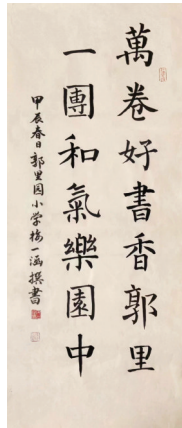 萬卷好書香郭里
一團和氣樂園中
甲辰春日郭里园小学梅一涵撰書